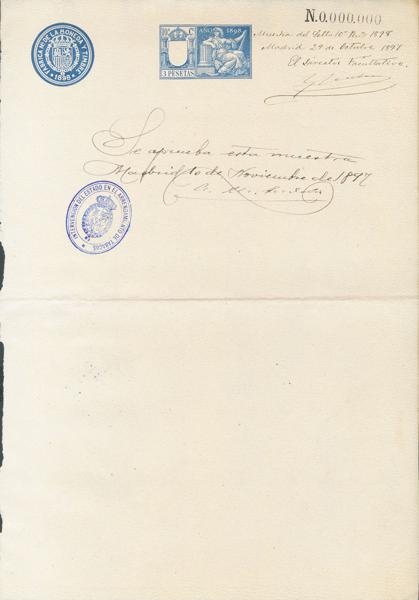 N.0.000.000
FÁBRICA N. DE LA MONEDA Y TIMBRE
1898
AÑO 1898
3 PESETAS
Muestra del Sello 10º Año 1898
Madrid 29 de Octubre 1897
El Director Facultativo
Se aprueba esta muestra
Madrid 10 de Noviembre de 1897
INTERVENCIÓN DEL ESTADO EN EL ARRENDAMIENTO DE TABACOS